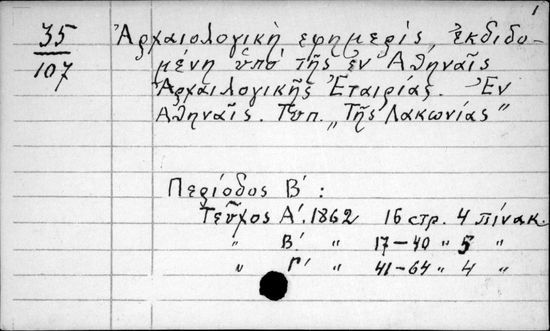 1
35 Ἀρχαιολογικὴ ἐφημερίς, ἐκδιδο-
107 μένη ὑπὸ τῆς ἐν Ἀθήναῖς
Ἀρχαιλογικῆς Ἑταιρίας. Ἐν
Ἀθηναῖς. Τυπ. „Τῆς Λακωνίας"
Περίοδος Β΄:
Τεῦχος Α΄. 1862 16 στρ. 4 πίνακ.
„ Β΄. „ 17–40 „ 5 „
„ Γ΄ „ 41–64 „ 4 „